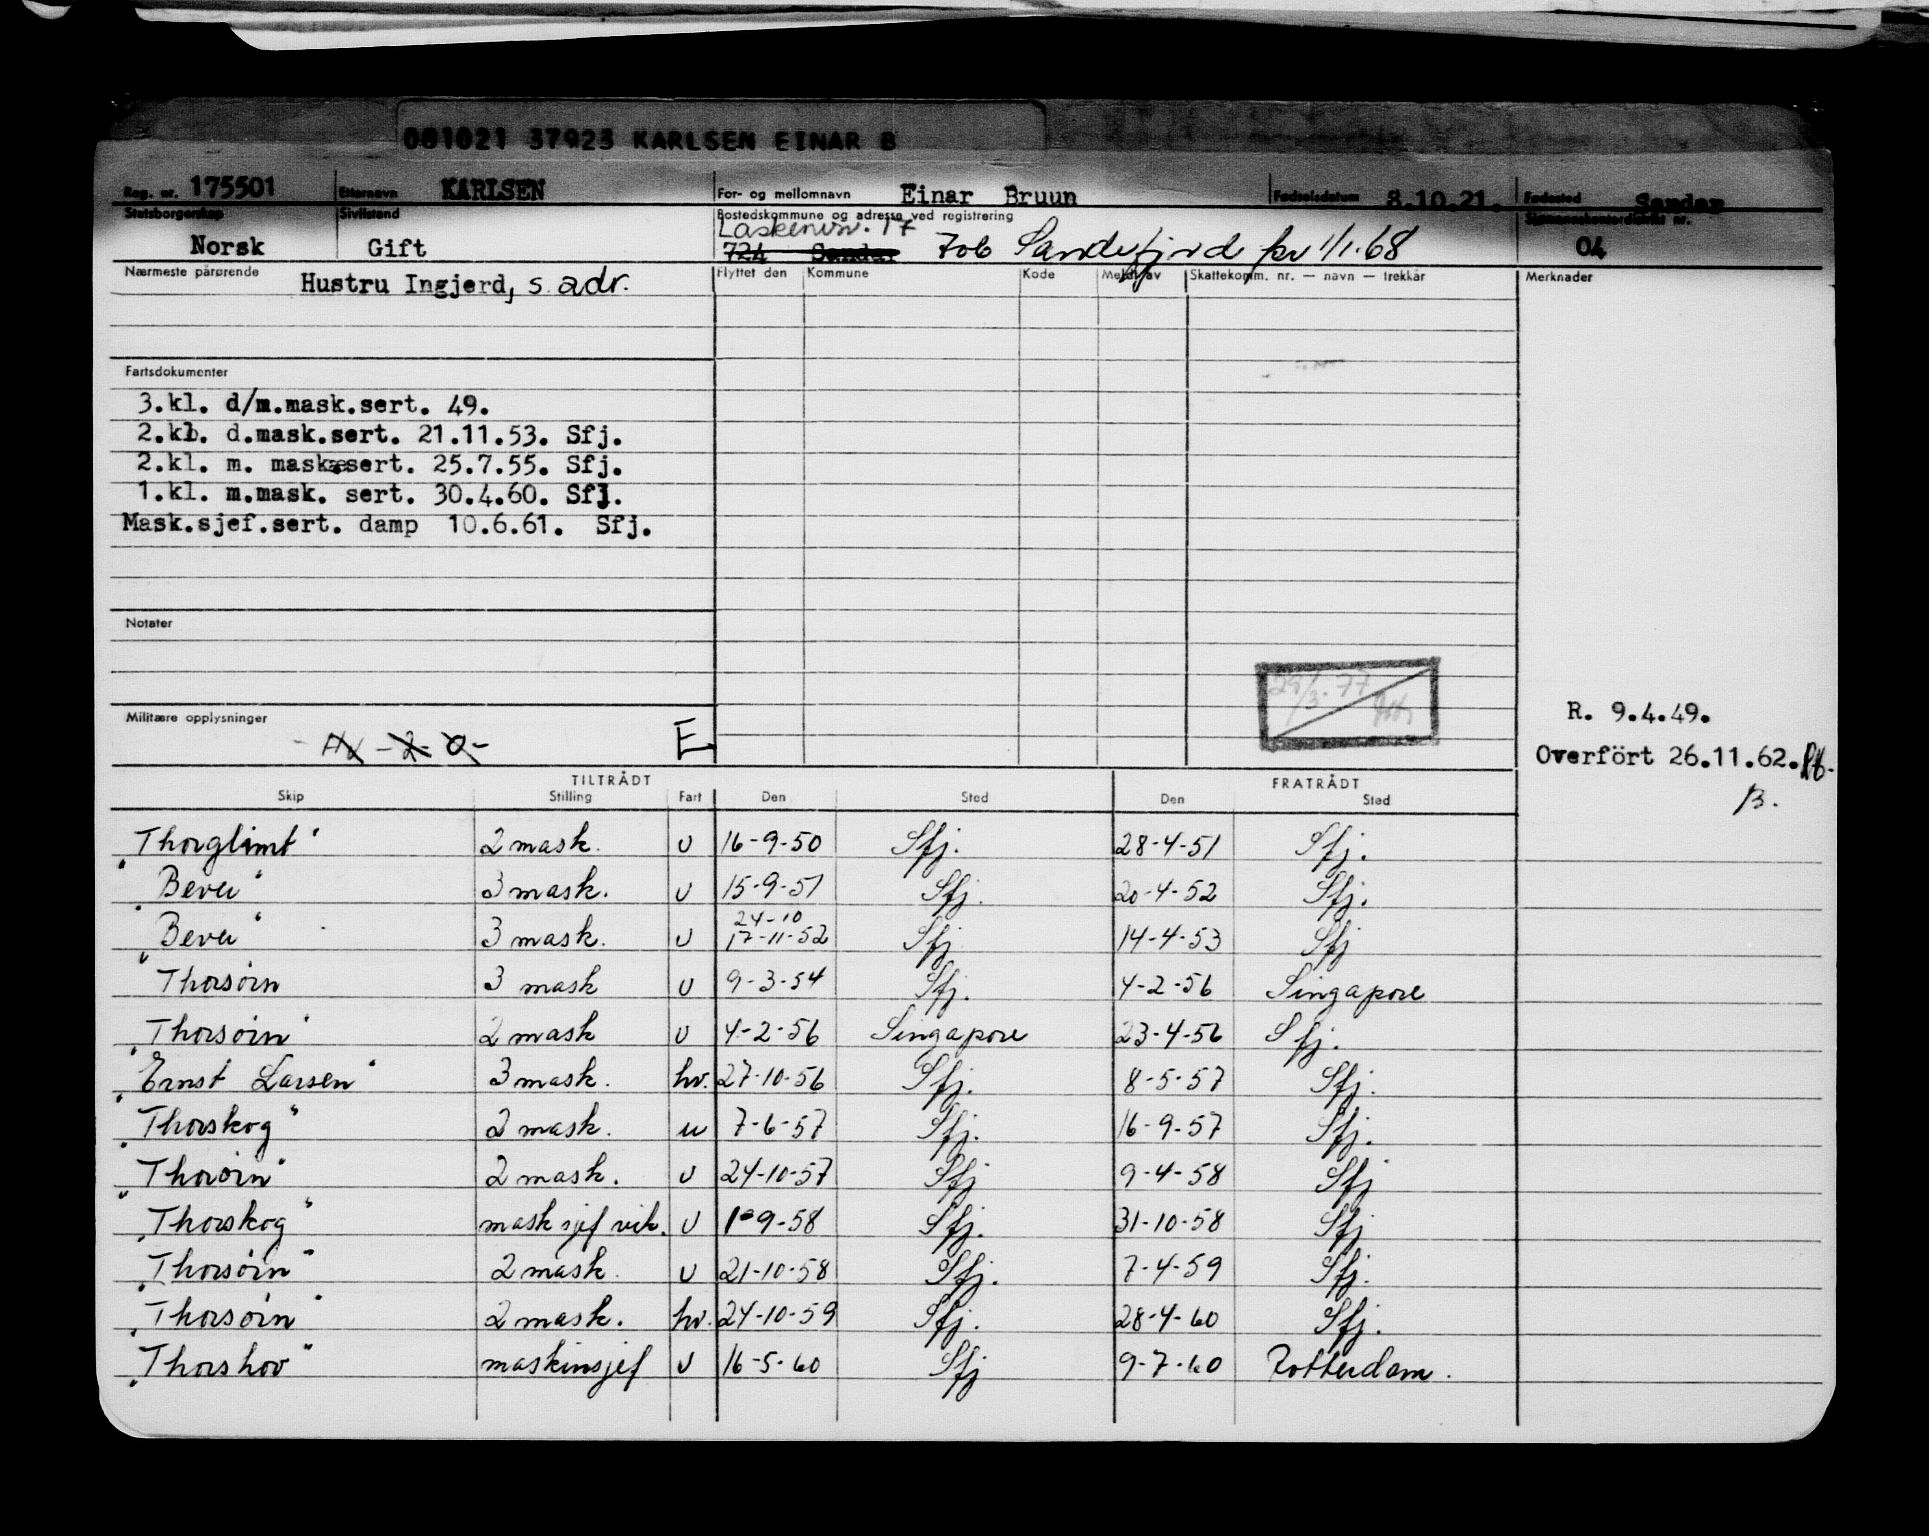 081021 37923 KARLSEN EINAR B
Reg. nr. 175501 Etternavn KARLSEN For- og mellomnavn Einar Bruun Fødselsdatum 8.10.21. Fødested Sandar
Statsborgerskap Norsk Sivilstand Gift Bostedskommune og adresse ved registrering Sjømannskontordistrikt nr. 04
17
724 Sandar 706 Sandefjord fra 1/1.68
Nærmeste pårørende Hustru Ingjerd, s. adr.
Flyttet den Kommune Kode Meldt av Skattekomm. nr. — navn — trekkår Merknader
Fartsdokumenter
3.kl. d/m.mask.sert. 49.
2.kl. d.mask.sert. 21.11.53. Sfj.
2.kl. m. mask.sert. 25.7.55. Sfj.
1.kl. m.mask. sert. 30.4.60. Sfj.
Mask.sjef.sert. damp 10.6.61. Sfj.
Notater
29/3.77
R. 9.4.49.
Militære opplysninger
- 2 - 0 - E
Overført 26.11.62.
B.
TILTRÅDT FRATRÅDT
Skip Stilling Fart Den Sted Den Sted
"Thorglimt" 2 mask. U 16-9-50 Sfj. 28-4-51 Sfj.
"Bever" 3 mask. U 15-9-51 Sfj. 20-4-52 Sfj.
24-10
"Bever" 3 mask. U 17-11-52 Sfj 14-4-53 Sfj
"Thorsörn 3 mask U 9-3-54 Sfj. 4-2-56 Singapore
"Thorsörn" 2 mask U 4-2-56 Singapore 23-4-56 Sfj.
"Ernst Larsen" 3 mask. hv. 27-10-56 Sfj. 8-5-57 Sfj.
"Thorskog" 2 mask. u 7-6-57 Sfj. 16-9-57 Sfj.
"Thorörn" 2 mask. U 24-10-57 Sfj 9-4-58 Sfj
"Thorskog" mask sjef vik. U 1-9-58 Sfj. 31-10-58 Sfj
"Thorsörn" 2 mask. U 21-10-58 Sfj. 7-4-59 Sfj.
"Thorsörn" 2 mask. hv. 24-10-59 Sfj. 28-4-60 Sfj.
"Thorshov" maskinsjef U 16-5-60 Sfj 9-7-60 Rotterdam.